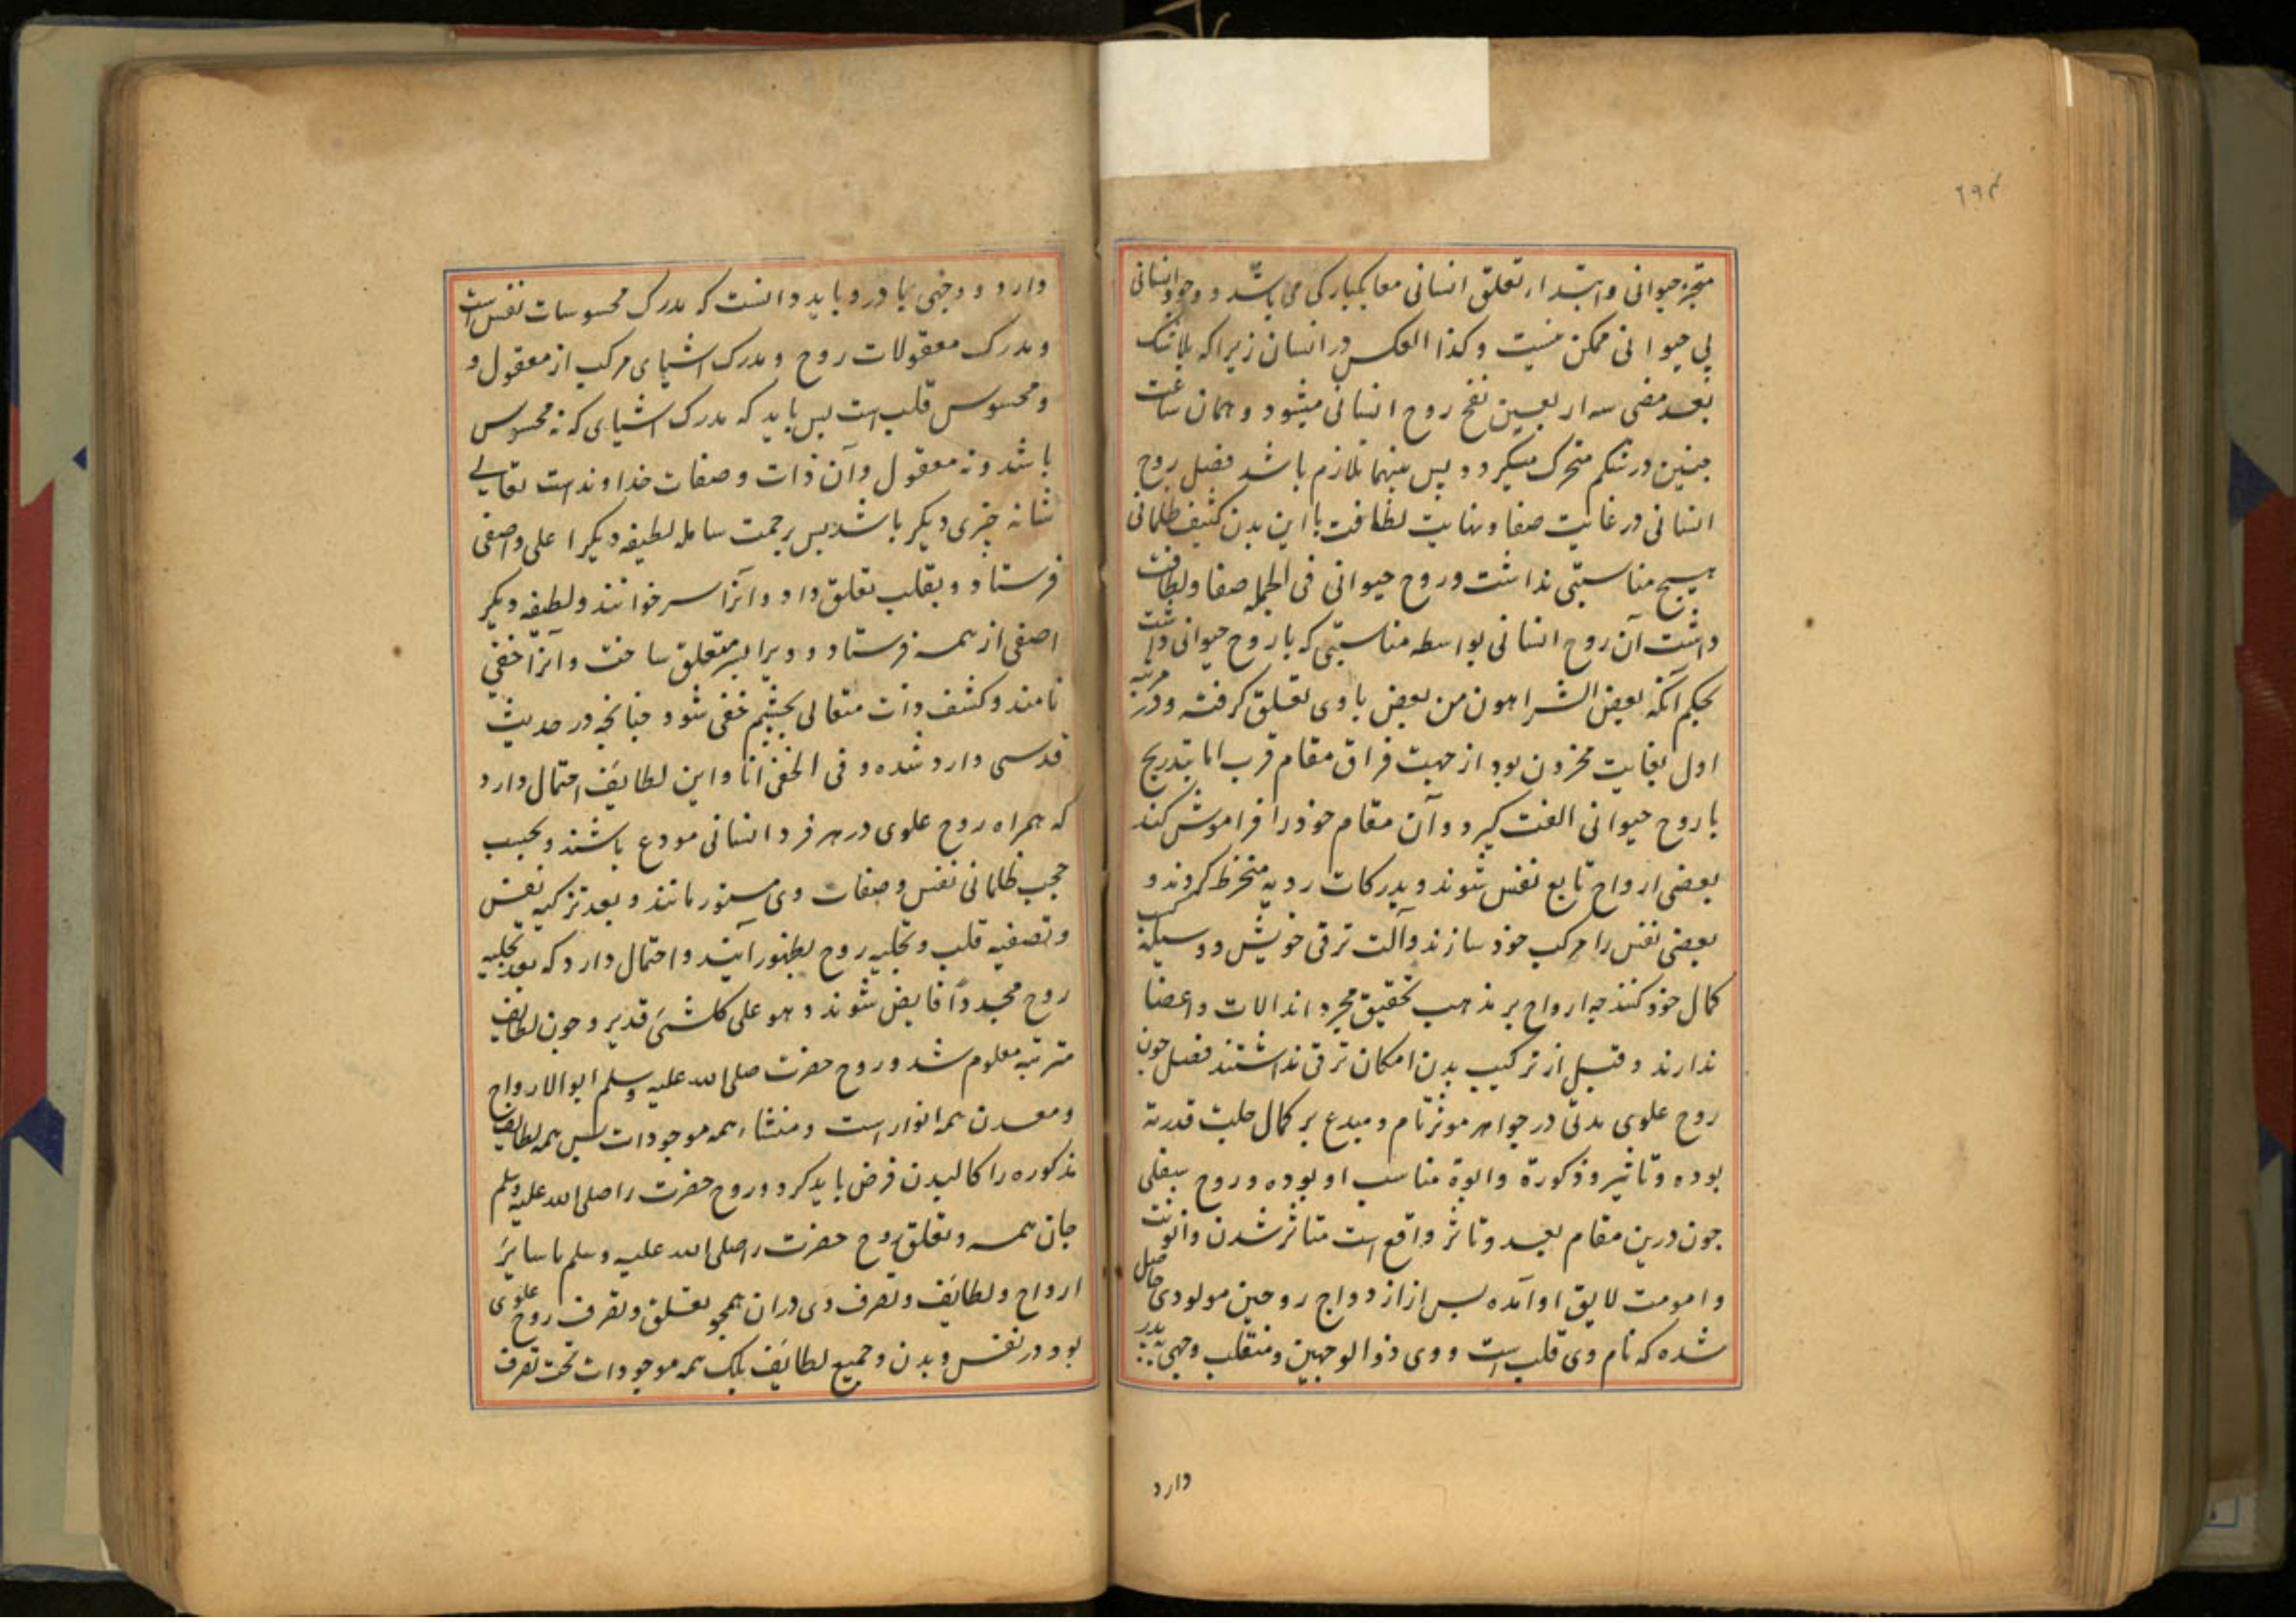 ۶۹۴
متجزه حیوانی وابتداء تعلق انسانی معا یکبارکی می باشد و وجود انسانی
بی حیوانی ممکن نیست و کذا العکس در انسان زیرا که بلا شک
بعد مضی سه اربعین نفخ روح انسانی میشود و همان ساعت
جنین در شکم متحرک میکردد پس بینهما تلازم باشد فصل روح
انسانی در غایت صفا و نهایت لطافت با این بدن کثیف ظلمانی
هیچ مناسبتی نداشت و روح حیوانی فی الجمله صفا و لطافت
داشت آن روح انسانی بواسطه مناسبتی که با روح حیوانی داشت
بحکم آنکه بعض الشر اهون من بعض با وی تعلق کرفته و در مرتبه
اول بغایت محزون بود از جهت فراق مقام قرب اما بتدریج
با روح حیوانی الفت کیرد و آن مقام خود را فراموش کند
بعضی ارواح تابع نفس شوند و بدرکات ردیه منخرط کردند و
بعضی نفس را مرکب خود سازند و آلت ترقی خویش و وسیله کسب
کمال خود کنند چه ارواح بر مذهب تحقیق مجرداند الات و اعضا
ندارند و قبل از ترکیب بدن امکان ترقی نداشتند فصل چون
روح علوی بدنی در جواهر موثر تام و مبدع بر کمال جلت قدرته
بوده و تاثیر و ذکورة و ابوة مناسب او بوده و روح سفلی
چون درین مقام بعید و تاثر واقع است متاثر شدن و انوثت
و امومت لایق او آمده پس از ازدواج روحین مولودی حاصل
شده که نام وی قلب است و وی ذوالوجهین و متقلب وجهی بپدر
دارد
دارد و وجهی بمادر و باید دانست که مدرک محسوسات نفس است
و مدرک معقولات روح و مدرک اشیای مرکب از معقول و
و محسوس قلب است پس باید که مدرک اشیای که نه محسوس
باشد و نه معقول و آن ذات و صفات خداوند است تعالی
شانه چیزی دیکر باشد پس برحمت شامله لطیفه دیکر اعلی و اصفی
فرستاد و بقلب تعلق داد و آنرا سر خوانند و لطیفه دیکر
اصفی از همه فرستاد و ویرا بسر متعلق ساخت و آنرا خفی
نامند و کشف ذات متعالی بچشم خفی شود چنانچه در حدیث
قدسی وارد شده و فی الخفی انا و این لطایف احتمال دارد
که همراه روح علوی در هر فرد انسانی مودع باشند و بحسب
حجب ظلمانی نفس و صفات وی مستور مانند و بعد تزکیه نفس
و تصفیه قلب و تجلیه روح بظهور آیند و احتمال دارد که بعد تجلیه
روح مجددًا فایض شوند و هو علی کل شئ قدیر و چون لطایف
مترتبه معلوم شد و روح حضرت صلی الله علیه وسلم ابوالارواح
و معدن همه انوار است و منشاء همه موجودات پس همه لطایف
مذکوره را کالبدن فرض باید کرد و روح حضرت را صلی الله علیه وسلم
جان همه و تعلق روح حضرت را صلی الله علیه وسلم با سایر
ارواح و لطایف و تصرف وی دران همچو تعلق و تصرف روح علوی
بود در نفس و بدن و جمیع لطایف بلک همه موجودات تحت تصرف